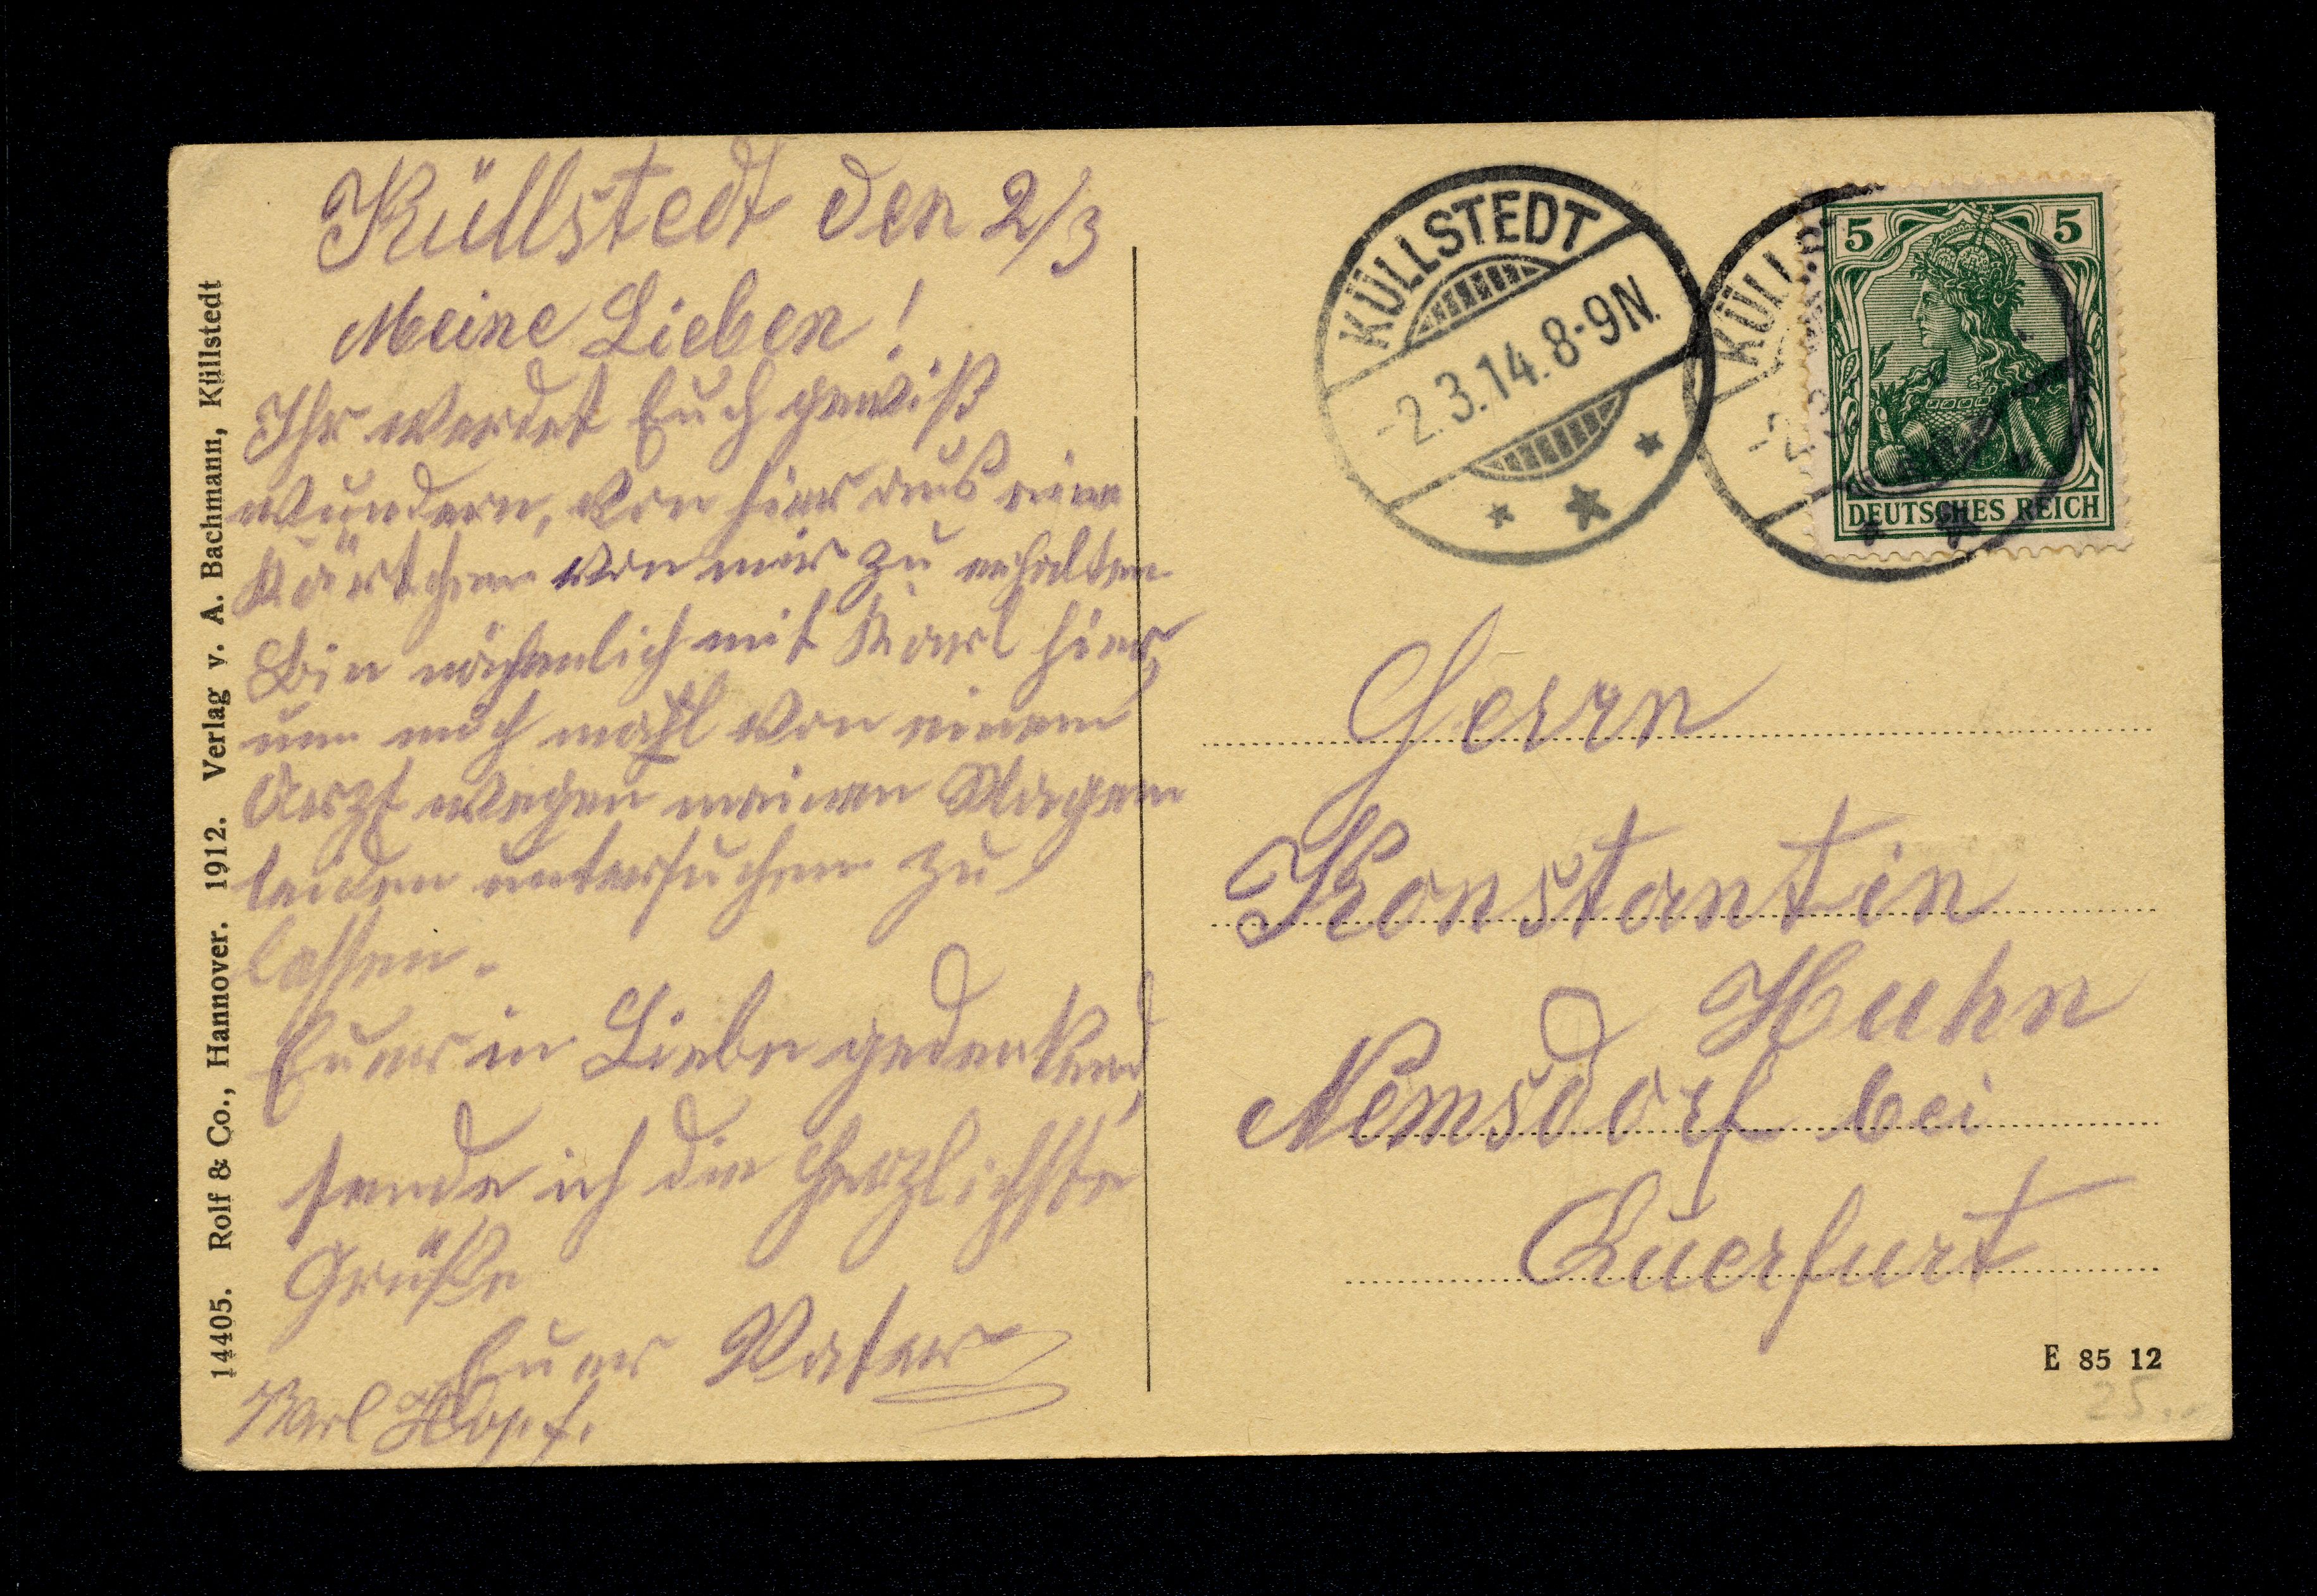 Küllstedt den 2/3
Meine Lieben!
Ihr werdet Euch gewiß
wundern, von hier aus eine
Kärtchen von mir zu erhalten
Bin nähmlich mit Karl hier,
um mich mahl von einem
Arzt wegen meinen Magen
leiden untersuchen zu
lassen.
Euer in Liebe gedenkend,
sende ich die herzlichste
Grüße
Euer Vater
Karl Hopf.
14405. Rolf & Co., Hannover. 1912. Verlag v. A. Bachmann, Küllstedt
KÜLLSTEDT
-2.3.14.8-9N.
KÜLLST
5 5
DEUTSCHES REICH
Herrn
Konstantin
Huhn
Nemsdorf bei
Querfurt
E 85 12
25.-